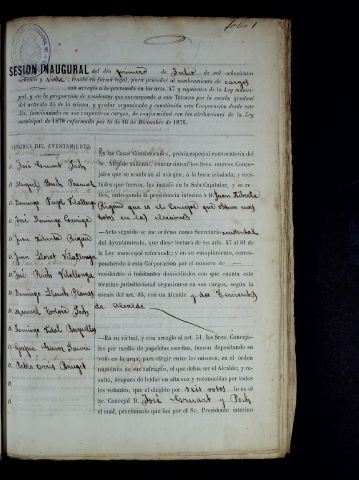 folio 1
SESIÓN INAUGURAL del dia primero de Julio de mil ochocientos
ochenta y siete; tenida en forma legal, para proceder al nombramiento de cargos
con arreglo á lo prevenido en los arts. 47 y siguientes de la Ley munici-
pal, y en la proporcion de residentes que corresponde á este Término por la escala gradual
del artículo 35 de la misma, y quedar organizado y constituido esta Corporacion desde este
dia, funcionando en sus respectivos cargos, de conformidad con las atribuciones de la Ley
municipal de 1870 reformada por la de 16 de Diciembre de 1876.
SEÑORES DEL AYUNTAMIENTO.
D. José Pech
D. Miguel Bosch Pascual
D. Domingo Puget Vilallonga
D. José Domingo
D. Juan Liberato
D. Juan Lloret Vilallonga
D. José Bosch Vilallonga
D. Domingo Llauch Planas
D. Manuel Pech
D. Domingo Vidal
D. Gaspar
D. Pablo
D.
D.
En las Casas Consistoriales, prévia especial convocatoria del
Sr. Alcalde saliente, concurrieron los Sres. nuevos Conce-
jales que se nombran al márgen, á la hora señalada; y reci-
bidos que fueron, les instaló en la Sala Capitular, y se re-
tiró, entregando la presidencia interina á D. Juan Liberato
que es el Concejal que obtuvo mas
votos en las elecciones
—Acto seguido se me ordenó como Secretario accidental
del Ayuntamiento, que diese lectura de los arts. 47 al 61 de
la Ley municipal reformada; y en su cumplimiento, corres-
pondiendo á esta Corporacion por el número de —
residentes ó habitantes domiciliados con que cuenta este
término jurisdiccional organizarse en sus cargos, segun la
escala del art. 35, con un Alcalde y dos Tenientes
de Alcalde
—En su virtud, y con arreglo al art. 51, los Sres. Conceja-
les por medio de papeletas escritas, fueron depositando su
voto en la urna, para elegir entre los mismos, en el órden
numérico de sus sufragios, el que debia ser el Alcalde; y re-
sultó, despues de leidas en alta voz y reconocidas por todos
los votantes, que el elegido por seis votos lo es el
Sr. Concejal D. José y Pech
el cual, proclamado que fué por el Sr. Presidente interino